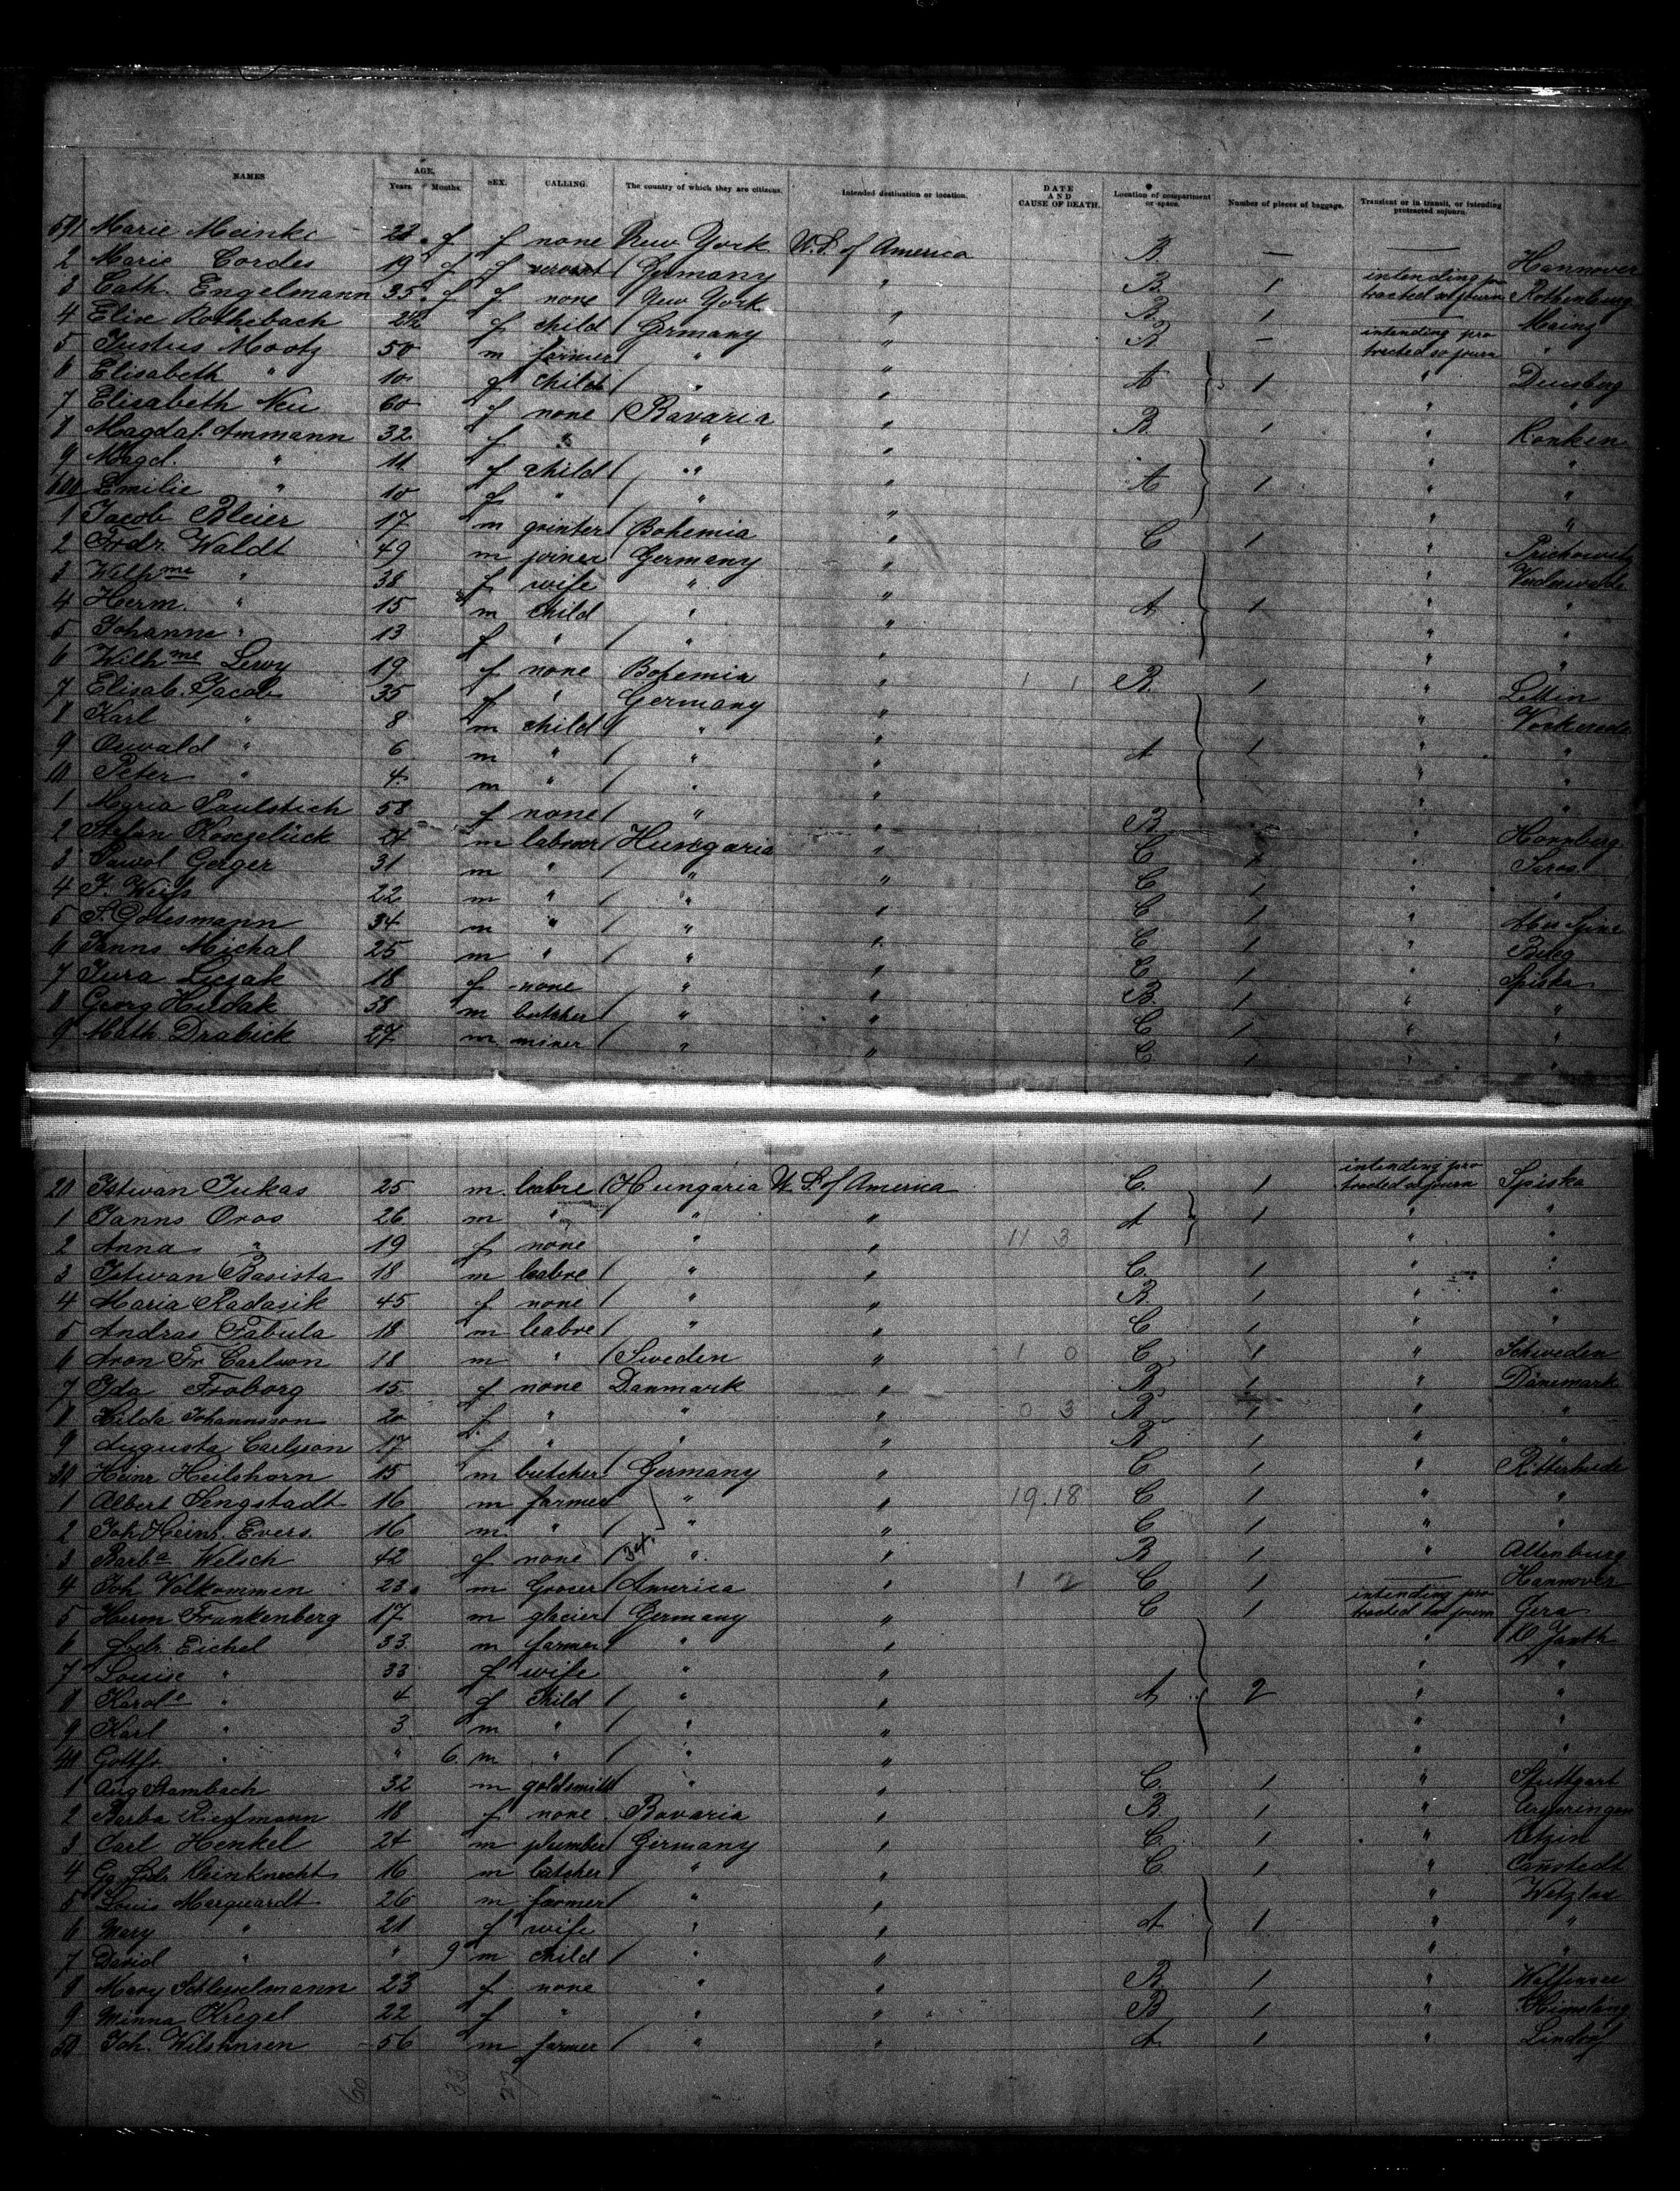 NAMES AGE, Years. Months. SEX. CALLING. The country of which they are citizens. Intended destination or location. DATE AND CAUSE OF DEATH. Location of compartment or space. Number of pieces of baggage. Transient or in transit, or intending protracted sojourn.
591 Marie Meinke 22 f f none New York U.S. of America B — —
2 Marie Cordes 19 f f servant Germany " B 1 intending protracted sojourn Hannover
3 Cath. Engelmann 35 f f none New York " B 1 — Rothenburg
4 Elise Rothebach f child Germany " B — intending protracted sojourn Mainz
5 Justus Mootz 50 m farmer " " "
6 Elisabeth " 10 f child " " A 1 " Duisberg
7 Elisabeth Neu 60 f none Bavaria " B 1 " "
8 Magdal. Ammann 32 f " " " " Konken
9 Magd. " 11 f child " " A 1 " "
600 Emilie " 10 f " " " " "
1 Jacob Bleier 17 m Bohemia " C 1 " "
2 Frdr. Waldt 49 m joiner Germany " "
3 Wilhme " 38 f wife " " "
4 Herm. " 15 m child " " A 1 " "
5 Johanne " 13 f " " " " "
6 Wilhme Lewy 19 f none Bohemia " B 1 " "
7 Elisab. Jacob 35 f " Germany " "
8 Karl " 8 m child " " "
9 Oswald " 6 m " " " A 1 " "
10 Peter " 4 m " " " " "
1 Maria Faulstich 58 f none " " B " "
2 Stefan 24 m labrer Hungaria " C 1 " Hannberg
3 Pawol Gerger 31 m " " " C 1 " Saros
4 J. Weiss 22 m " " " C 1 " "
5 S. Gotesmann 34 m " " " C 1 "
6 Janns Michal 25 m " " " C 1 "
7 Jura Liczak 18 f none " " B 1 " Spiska
8 Georg Hudak 58 m butcher " " C 1 " "
9 Math. Drabick 27 m miner " " C 1 " "
20 Istwan Jukas 25 m labre Hungaria U.S. of America C. 1 intending protracted sojourn Spiska
1 Janns Oros 26 m " " " A 1 " "
2 Anna " 19 f none " " 11 3 " "
3 Istwan Basista 18 m labre " " C. 1 " "
4 Maria Radasik 45 f none " " B. 1 " "
5 Andras Fabula 18 m labre " " C 1 " "
6 Aron Fr. Carlson 18 m " Sweden " 1 0 C 1 " Schweden
7 Ida Froborg 15 f none Danmark " B 1 " Dänemark
8 Hilda Johannsson 20 f " " " 0 3 B 1 " "
9 Augusta Carlsson 17 f " " " B 1 " "
30 Heinr Heilshorn 15 m butcher Germany " C 1 " Ritterhude
1 Albert Sengstadt 16 m farmer " " 19.18 C 1 " "
2 Joh Heinr. Evers 16 m " " " C 1 " "
3 Barba Welsch 42 f none " " B 1 " Altenburg
4 Joh Volkommen 23 m Grocer America " 1 2 C 1 — Hannover
5 Herm Frankenberg 17 m glacier Germany " C 1 intending protracted sojourn Gera
6 Frdr. Eichel 33 m farmer " " "
7 Louise " 33 f wife " " " "
8 Karole " 4 f child " " A 2 " "
9 Karl " 3 m " " " " "
40 Gottfr. " " 6 m " " " " "
1 Aug Stambach 32 m goldsmith " " C. 1 " Stuttgart
2 Barba Riessmann 18 f none Bavaria " B 1 "
3 Carl Henkel 24 m plumber Germany " C. 1 " Ketzin
4 Gg Frdr. Kleinknecht 16 m butcher " " C 1 " Canstedt
5 Louis Marquardt 26 m farmer " " " Wetzlar
6 Mary " 21 f wife " " A 1 " "
7 David " " 9 m child " " " "
8 Mary Schlesselmann 23 f none " " B 1 "
9 Minna Kregel 22 f " " " B 1 "
50 Joh. Wilshusen 56 m farmer " " A 1 " Lindorf